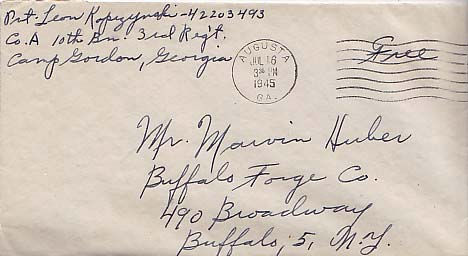 Pvt. Leon Kopczynski-42203493
Co. A 10th Bn. 3rd Regt.
Camp Gordon, Georgia
AUGUSTA
JUL 16
3 PM
1945
GA.
Free
Mr. Marvin Huber
Buffalo Forge Co.
490 Broadway
Buffalo, 5, N.Y.